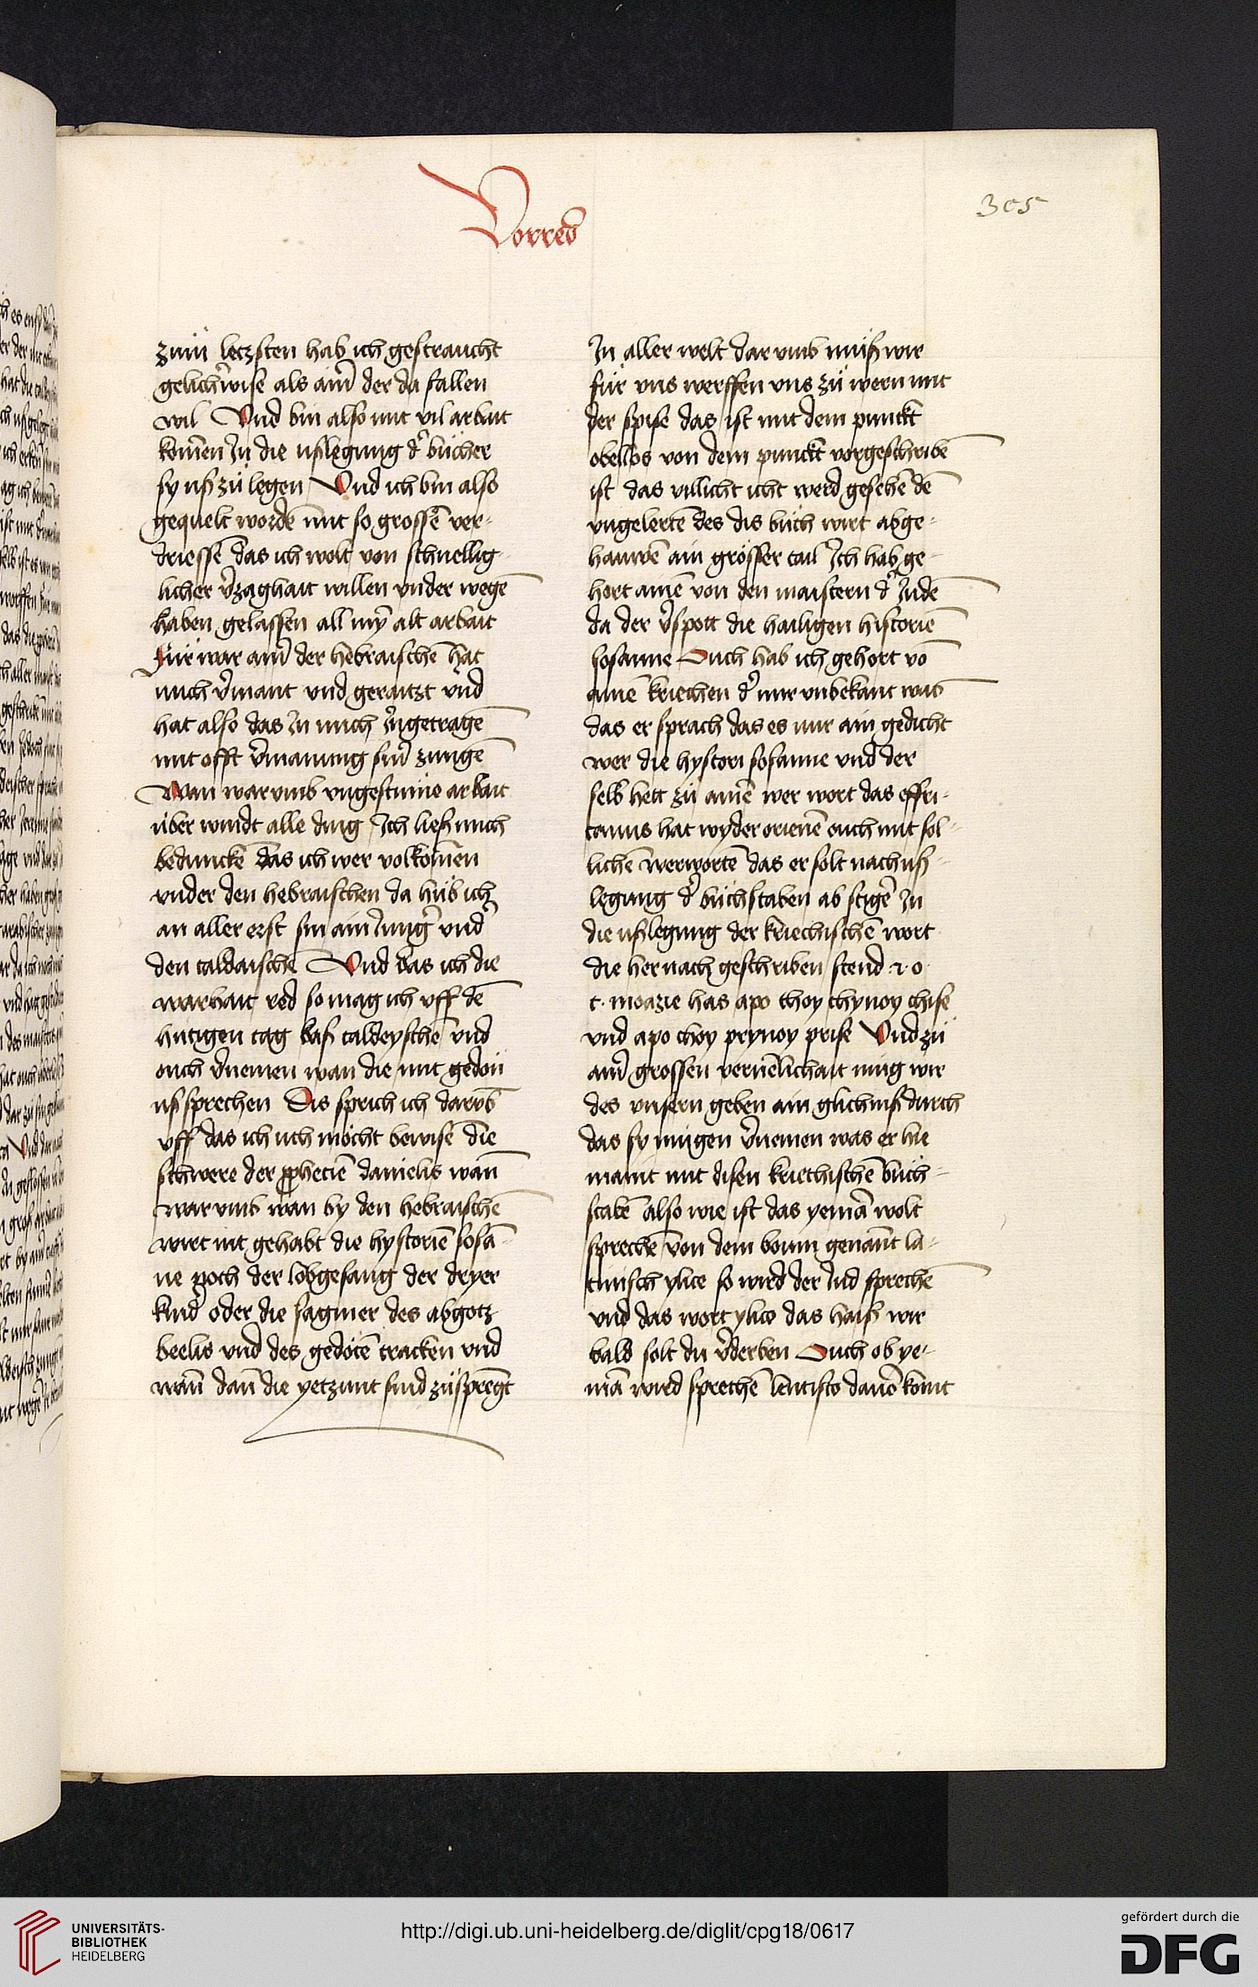 Vorred
305
zum letzsten hab ich gestraucht
gelicherwise als aim̄ der da fallen
wil Vnd bin also mit vil arbait
komēn In die uslegung dˀ bücher
sy us zü legen Vnd ich bin also
gequelt wordē mit so grossē ver-
driessē das ich wolt von schnellig-
licher v̾zaghait willen vnder wegē
haben gelassen all my̅ alt arbait
Für war aim̄ der hebraischē hat
mich v̾mant vnd geraitzt vnd
hat also das In mich Ingetragē
mit offt v̾manung sim̄ zungē
Wan warumb vngestumo arbait
über windt alle ding Ich liess mich
beduncke das ich wer volkomēn
vnder den hebraischen da hüb ich
an aller erst sin ain Jungˀ vndˀ
den caldaischē Vnd das ich die
warhait red so mag ich vff dē
hutigen tag bas caldeyschē vnd
ouch v̾nemen wan die mit gedön
us sprechen Dis sprich ich darūb
vff das ich uch möcht bewise die
schwere der prophecie danielis wan̄
warumb wan by den hebraischē
wirt nit gehabt die hystoriē sosā-
ne noch der lobgesang der dryer
kind oder die sagmer des abgotz
beelis vnd des gedötē tracken vnd
wan̄ dan̄ die yetzunt sind züspregt
In aller welt dar vmb müss wir
für vns werffen vns zü wern mit
der spise das ist mit dem punckt
obellos von dem punckt vorgeschribē
ist das villicht icht werd gesehē dē
vngelertē des dis büch wirt abge-
hauwē ain grösser tail Ich hab ge-
hort ainē von den maistern dˀ Judē
da der v̾spott die hailigen historiē
sosanne Ouch hab ich gehort vō
ainē kriechen dˀ mir vnbekant was
das er sprach das es nur ain gedicht
wer die hystori sosanne vnd der
selb hett zü ainē wer wort das effri-
canus hat wyder orienē ouch mit söl-
lichē werwortē das er solt nach us-
legung dˀ büchstaben ab stigē In
die uslegung der kriechischē wort
die hernach geschriben stend ro
t. moazie has apo thoy thynoy chise
vnd apo thoy prynoy prise Vnd zü
aim̄ grossen vernēlichait mug wir
des unsern geben ain glichnis durch
das sy mügen v̾nemen was er hie
maint mit disen kriechischē buch-
stabē also wie ist das yemā wolt
spreche von dem boum genāt la-
tinisch ylice so wird der Jud sprechē
vnd das wort ylico das haiss wir
bald solt du v̾derben Ouch ob ye-
mā wird sprechē lentisco dauō komt
UNIVERSITÄTS-
BIBLIOTHEK
HEIDELBERG
http://digi.ub.uni-heidelberg.de/diglit/cpg18/0617
gefördert durch die
DFG